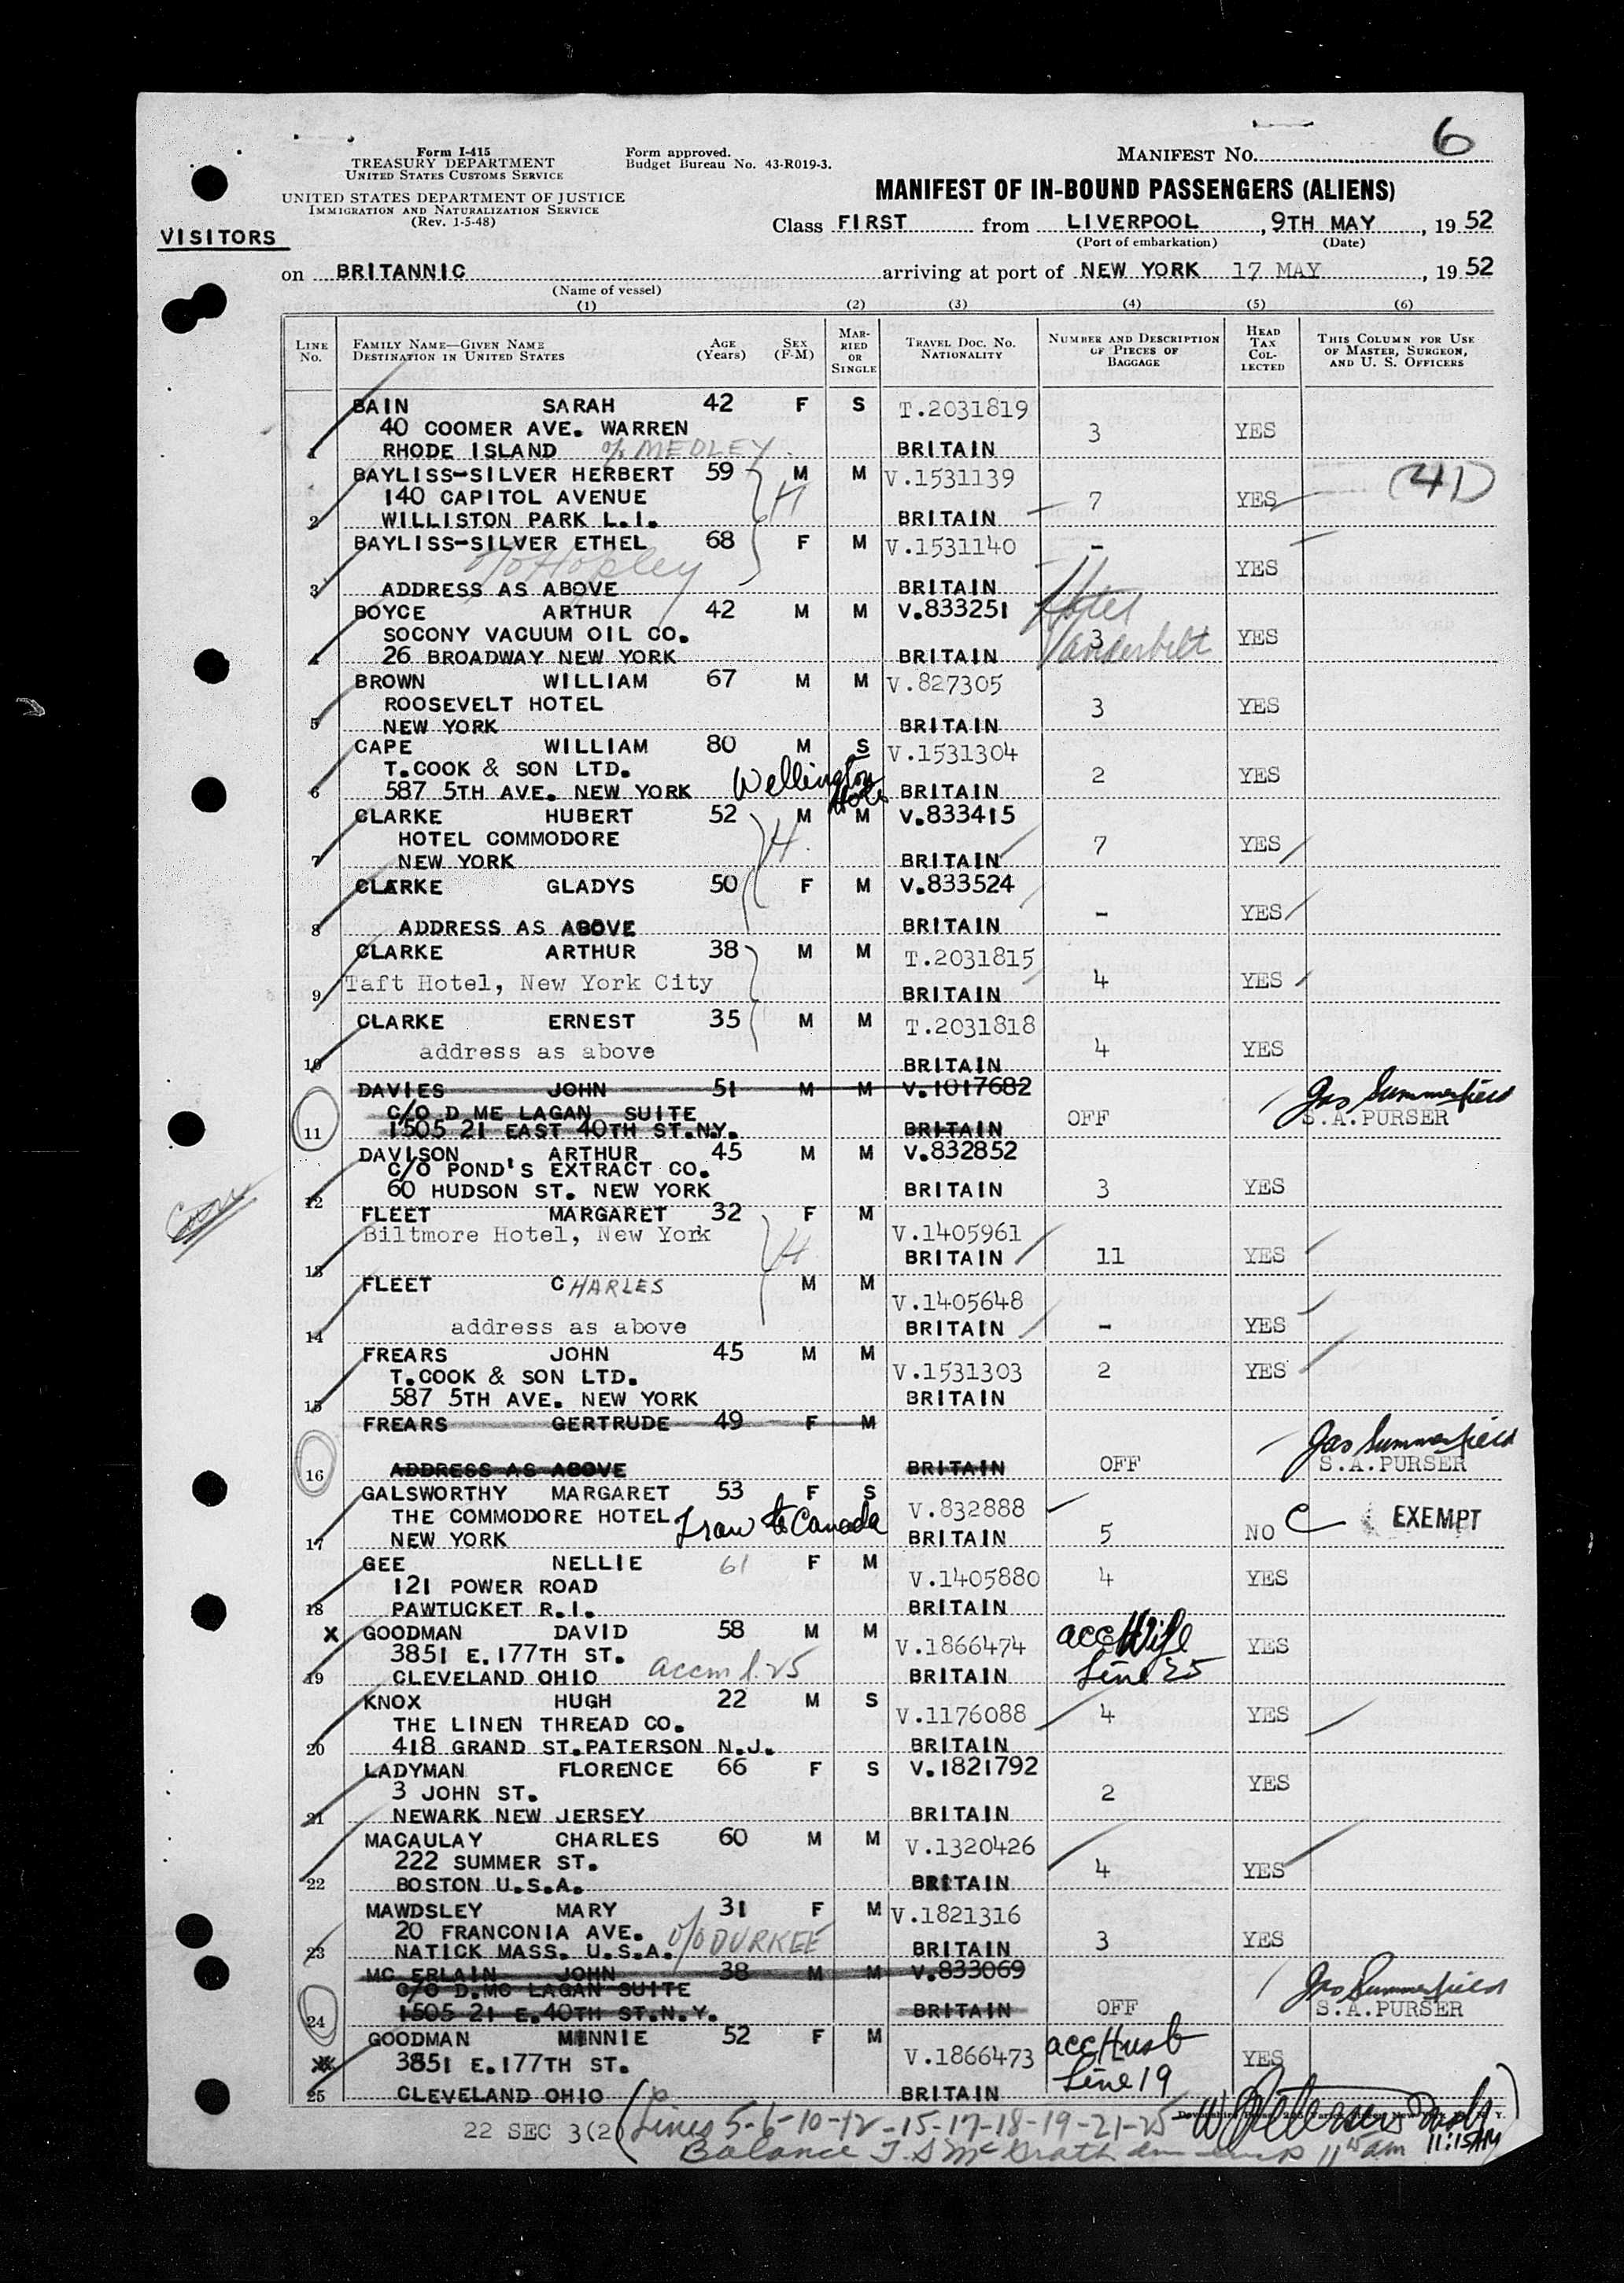 6
Form I-415
TREASURY DEPARTMENT
UNITED STATES CUSTOMS SERVICE
Form approved.
Budget Bureau No. 43-R019-3.
MANIFEST NO.
UNITED STATES DEPARTMENT OF JUSTICE
IMMIGRATION AND NATURALIZATION SERVICE
(Rev. 1-5-48)
MANIFEST OF IN-BOUND PASSENGERS (ALIENS)
VISITORS
Class FIRST from LIVERPOOL, 9TH MAY, 1952
(Port of embarkation) (Date)
on BRITANNIC arriving at port of NEW YORK 17 MAY, 1952
(Name of vessel)
(1) (2) (3) (4) (5) (6)
LINE No. FAMILY NAME—GIVEN NAME DESTINATION IN UNITED STATES AGE (Years) SEX (F-M) MARRIED OR SINGLE TRAVEL DOC. NO. NATIONALITY NUMBER AND DESCRIPTION OF PIECES OF BAGGAGE HEAD TAX COLLECTED THIS COLUMN FOR USE OF MASTER, SURGEON, AND U. S. OFFICERS
BAIN SARAH 42 F S T.2031819
40 COOMER AVE. WARREN 3 YES
1 RHODE ISLAND c/o MEDLEY BRITAIN
BAYLISS-SILVER HERBERT 59 M M V.1531139 (41)
140 CAPITOL AVENUE H 7 YES
2 WILLISTON PARK L.I. BRITAIN
BAYLISS-SILVER ETHEL 68 F M V.1531140 -
c/o Hopley YES
3 ADDRESS AS ABOVE BRITAIN
BOYCE ARTHUR 42 M M V.833251 Hotel
SOCONY VACUUM OIL CO. 3 Vanderbilt YES
4 26 BROADWAY NEW YORK BRITAIN
BROWN WILLIAM 67 M M V.827305
ROOSEVELT HOTEL 3 YES
5 NEW YORK BRITAIN
CAPE WILLIAM 80 M S V.1531304
T.COOK & SON LTD. Wellington 2 YES
6 587 5TH AVE. NEW YORK Hotel BRITAIN
CLARKE HUBERT 52 M M V.833415
HOTEL COMMODORE H. 7 YES
7 NEW YORK BRITAIN
CLARKE GLADYS 50 F M V.833524
- YES
8 ADDRESS AS ABOVE BRITAIN
CLARKE ARTHUR 38 M M T.2031815
Taft Hotel, New York City 4 YES
9 BRITAIN
CLARKE ERNEST 35 M M T.2031818
address as above 4 YES
10 BRITAIN
DAVIES JOHN 51 M M V.1017682 Jas Summerfield
C/O D ME LAGAN SUITE OFF S.A.PURSER
11 1505 21 EAST 40TH ST.N.Y. BRITAIN
DAVISON ARTHUR 45 M M V.832852
C/O POND'S EXTRACT CO.
12 60 HUDSON ST. NEW YORK BRITAIN 3 YES
FLEET MARGARET 32 F M
Biltmore Hotel, New York V.1405961
13 H BRITAIN 11 YES
FLEET CHARLES M M
V.1405648
14 address as above BRITAIN - YES
FREARS JOHN 45 M M
T.COOK & SON LTD. V.1531303 2 YES
15 587 5TH AVE. NEW YORK BRITAIN
FREARS GERTRUDE 49 F M Jas Summerfield
16 ADDRESS AS ABOVE BRITAIN OFF S.A.PURSER
GALSWORTHY MARGARET 53 F S V.832888
THE COMMODORE HOTEL Tran to Canada 5 NO C EXEMPT
17 NEW YORK BRITAIN
GEE NELLIE 61 F M
121 POWER ROAD V.1405880 4 YES
18 PAWTUCKET R.I. BRITAIN
X GOODMAN DAVID 58 M M acc Wife
3851 E.177TH ST. V.1866474 YES
19 CLEVELAND OHIO accm l. 25 BRITAIN Line 25
KNOX HUGH 22 M S
THE LINEN THREAD CO. V.1176088 4 YES
20 418 GRAND ST.PATERSON N.J. BRITAIN
LADYMAN FLORENCE 66 F S V.1821792
3 JOHN ST. 2 YES
21 NEWARK NEW JERSEY BRITAIN
MACAULAY CHARLES 60 M M V.1320426
222 SUMMER ST. 4 YES
22 BOSTON U.S.A. BRITAIN
MAWDSLEY MARY 31 F M V.1821316
20 FRANCONIA AVE. 3 YES
23 NATICK MASS. U.S.A. c/o DURKEE BRITAIN
MC ERLAIN JOHN 38 M M V.833069 Jas Summerfield
C/O D.MC LAGAN SUITE OFF S.A.PURSER
24 1505 21 E.40TH ST.N.Y. BRITAIN
GOODMAN MINNIE 52 F M acc Husb
3851 E.177TH ST. V.1866473 YES
25 CLEVELAND OHIO BRITAIN Line 19
22 SEC 3(2) (Lines 5-6-10-12-15-17-18-19-21-25
Balance T. S McGrath 11 15 am 11:15AM